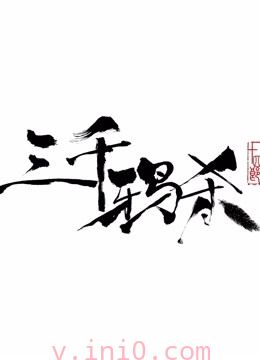 三千鸦杀
十四郎
v.ini0.com